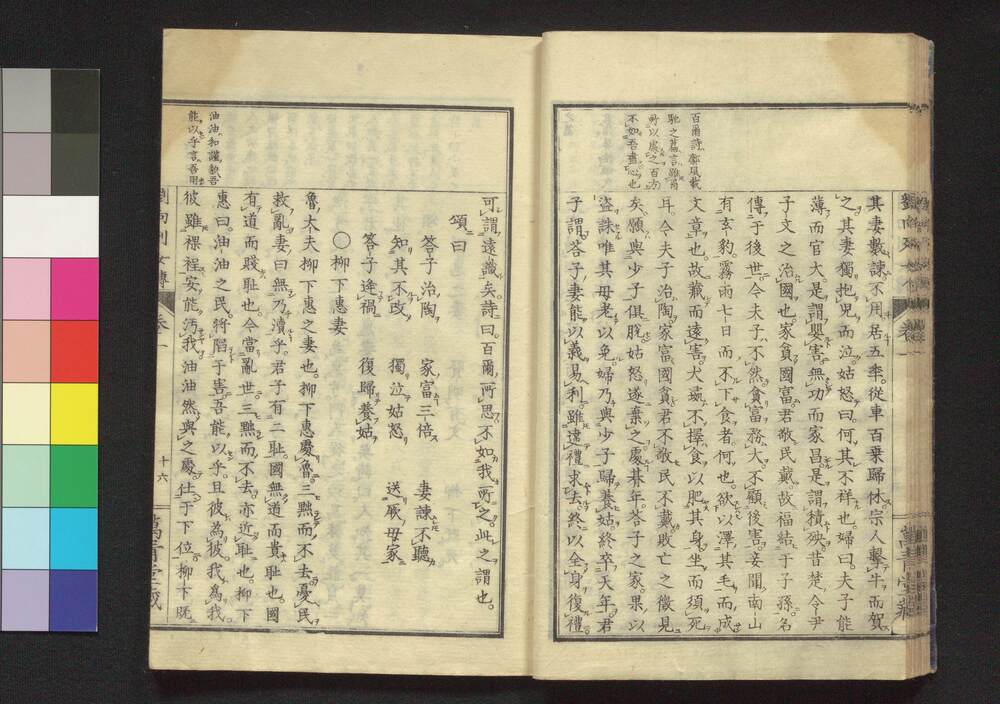 百爾詩鄘風載
馳之篇言雖爾
所以處之百方
不如吾盡心也
其妻數諫不用居五年從車百乘歸休宗人擊牛而賀
之其妻獨抱兒而泣姑怒曰何其不祥也婦曰夫子能
薄而官大是謂嬰害無功而家昌是謂積殃昔楚令尹
子文之治國也家貧國富君敬民戴故福結于子孫名
傳于後世今夫子不然貪富務大不顧後害妾聞南山
有玄豹霧雨七日而不下食者何也欲以澤其毛而成
文章也故藏而遠害犬彘不擇食以肥其身坐而須死
耳今夫子治陶家富國貧君不敬民不戴敗亡之徵見
矣願與少子俱脫姑怒遂棄之處朞年荅子之家果以
盜誅唯其母老以免婦乃與少子歸養姑終卒天年君
子謂荅子妻能以義易利雖違禮求去終以全身復禮
可謂遠識矣詩曰百爾所思不如我所之此之謂也
頌曰
荅子治陶 家富三倍 妻諫不聽
知其不改 獨泣姑怒 送厥母家
荅子逢禍 復歸養姑
○柳下惠妻
魯大夫柳下惠之妻也柳下惠處魯三黜而不去憂民
救亂妻曰無乃瀆乎君子有二恥國無道而貴恥也國
有道而賤恥也今當亂世三黜而不去亦近恥也柳下
惠曰油油之民將陷于害吾能以乎且彼為彼我為我
彼雖裸裎安能汚我油油然與之處仕于下位柳下既
油油和謹皃吾
能以乎言吾用
十六